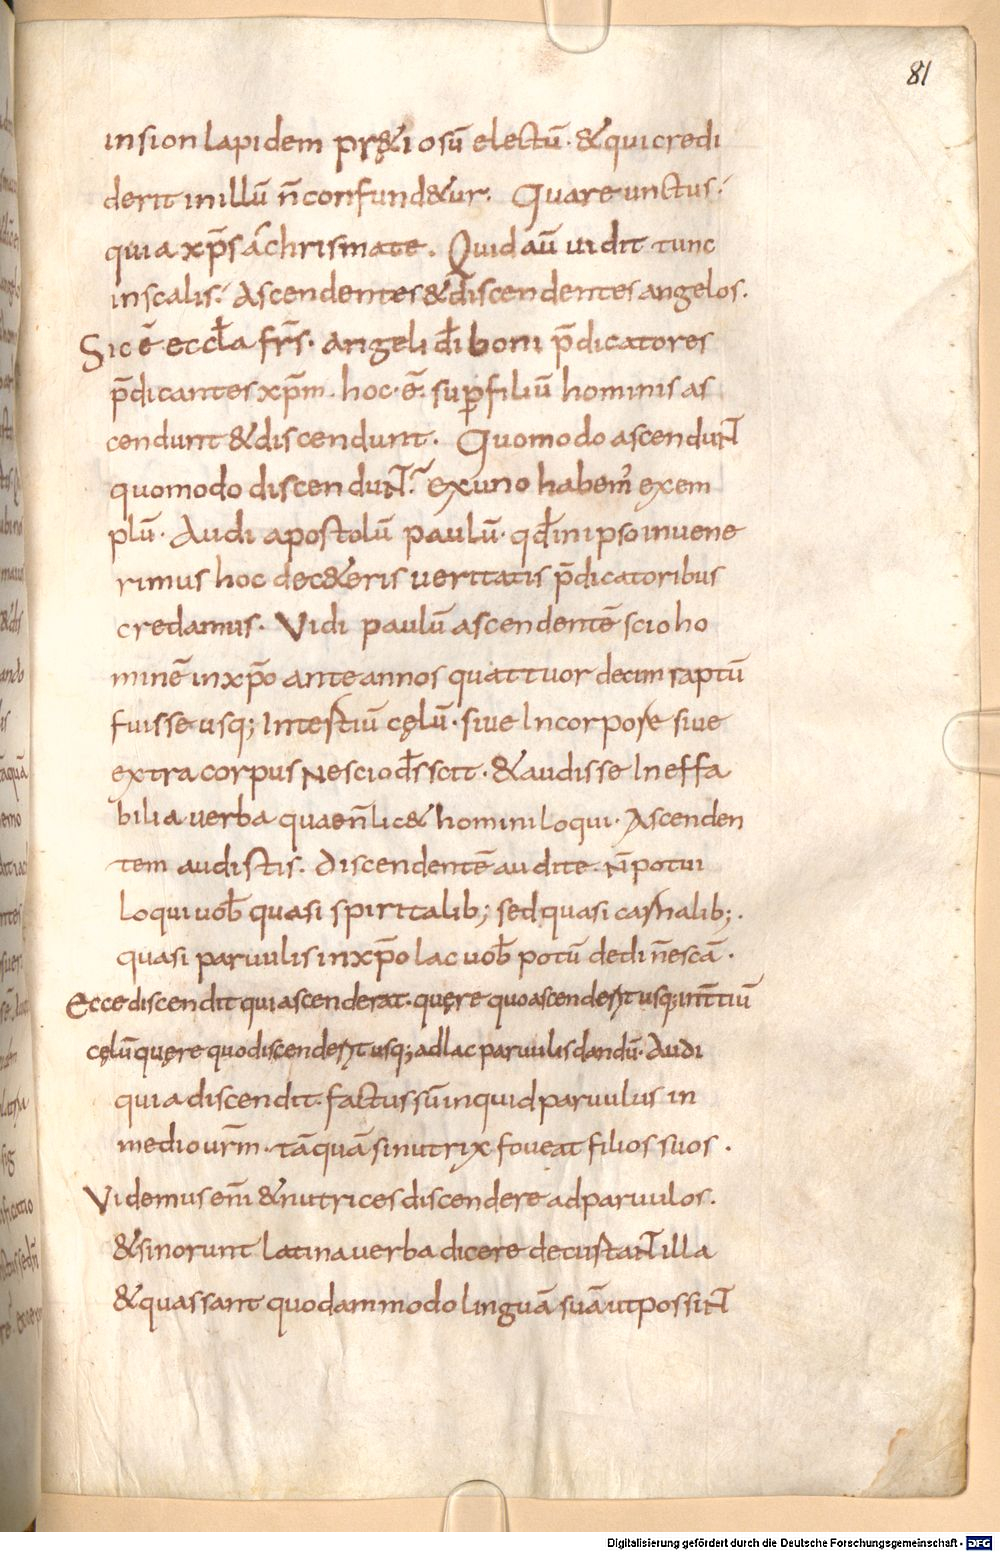 81
in sion lapidem pręt&iosū electū· & qui credi
derit in illū n̄ confund&ur. Quare unctus·
quia xp̄s a chrismate. Quid aū uidit tunc
in scalis· Ascendentes & discendentes angelos.
Sic ē eccła fr̄s· angeli dī boni p̄dicatores
p̄dicantes xp̄m. hoc·ē· sup filiū hominis as
cendunt & discendunt. Quomodo ascendunt
quomodo discendunt· ex uno habem' exem
plū· Audi apostolū paulū· qd in ipso inuene
rimus hoc dec&eris ueritatis p̄dicatoribus
credamus· Vidi paulū ascendentē scio ho
minē in xp̄o ante annos quattuor decim raptū
fuisse usq; In tertiū cęlū· siue In corpore siue
extra corpus nescio ds̄ scit· & audisse Ineffa
bilia uerba quae n̄ lic& homini loqui· Ascenden
tem audistis. discendentē audite· n̄ potui
loqui uob quasi spiritalib; sed quasi carnalib;.
quasi paruulis in xp̄o lac uob potū dedi n̄ escā.
Ecce discendit qui ascenderat· quęre quo ascenderit usq; in tertiū
cęlū quęre quo discenderit usq; ad lac paruulis dandū· Audi
quia discendit· factus sū inquid paruulus in
medio urm̄· tāquā si nutrix foueat filios suos.
Videmus enī & nutrices discendere ad paruulos.
& si norunt latina uerba dicere decurtant illa
& quassant quodammodo linguā suā ut possint
Digitalisierung gefördert durch die Deutsche Forschungsgemeinschaft - DFG